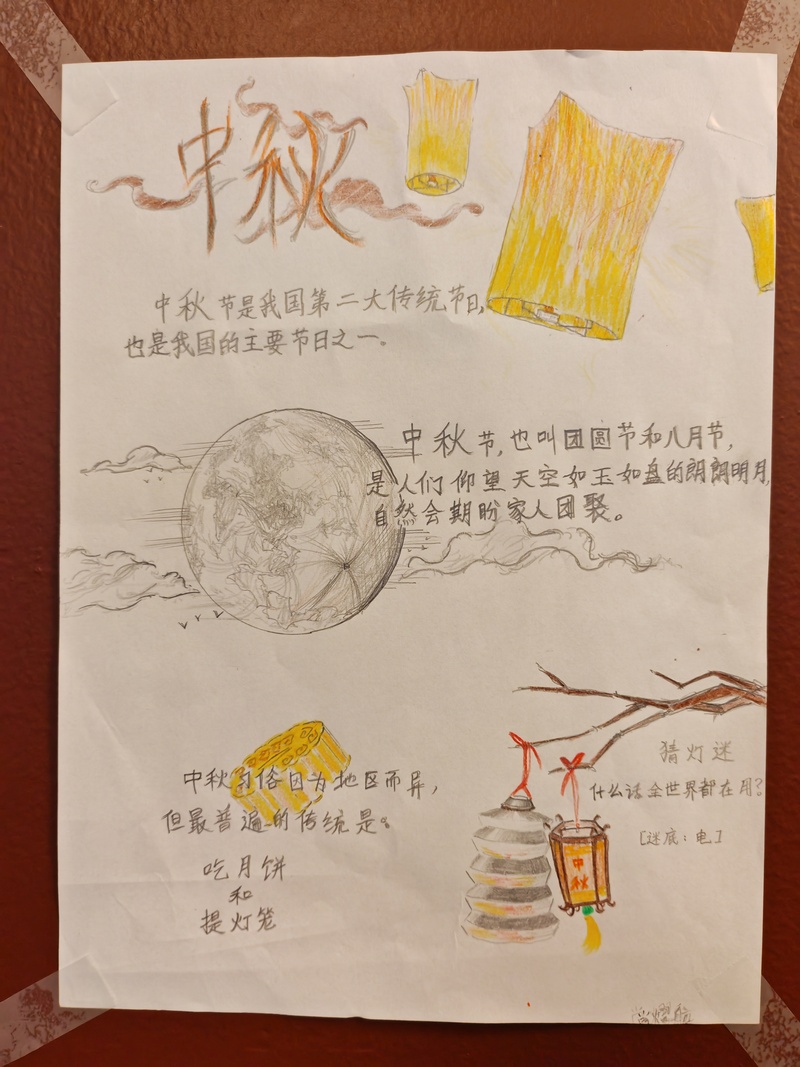 中秋
中秋节是我国第二大传统节日,
也是我国的主要节日之一。
中秋节,也叫团圆节和八月节,
是人们仰望天空如玉如盘的朗朗明月,
自然会期盼家人团聚。
中秋习俗因为地区而异,
但最普遍的传统是:
吃月饼
和
提灯笼
猜灯迷
什么话全世界都在用?
[迷底:电]
中
秋